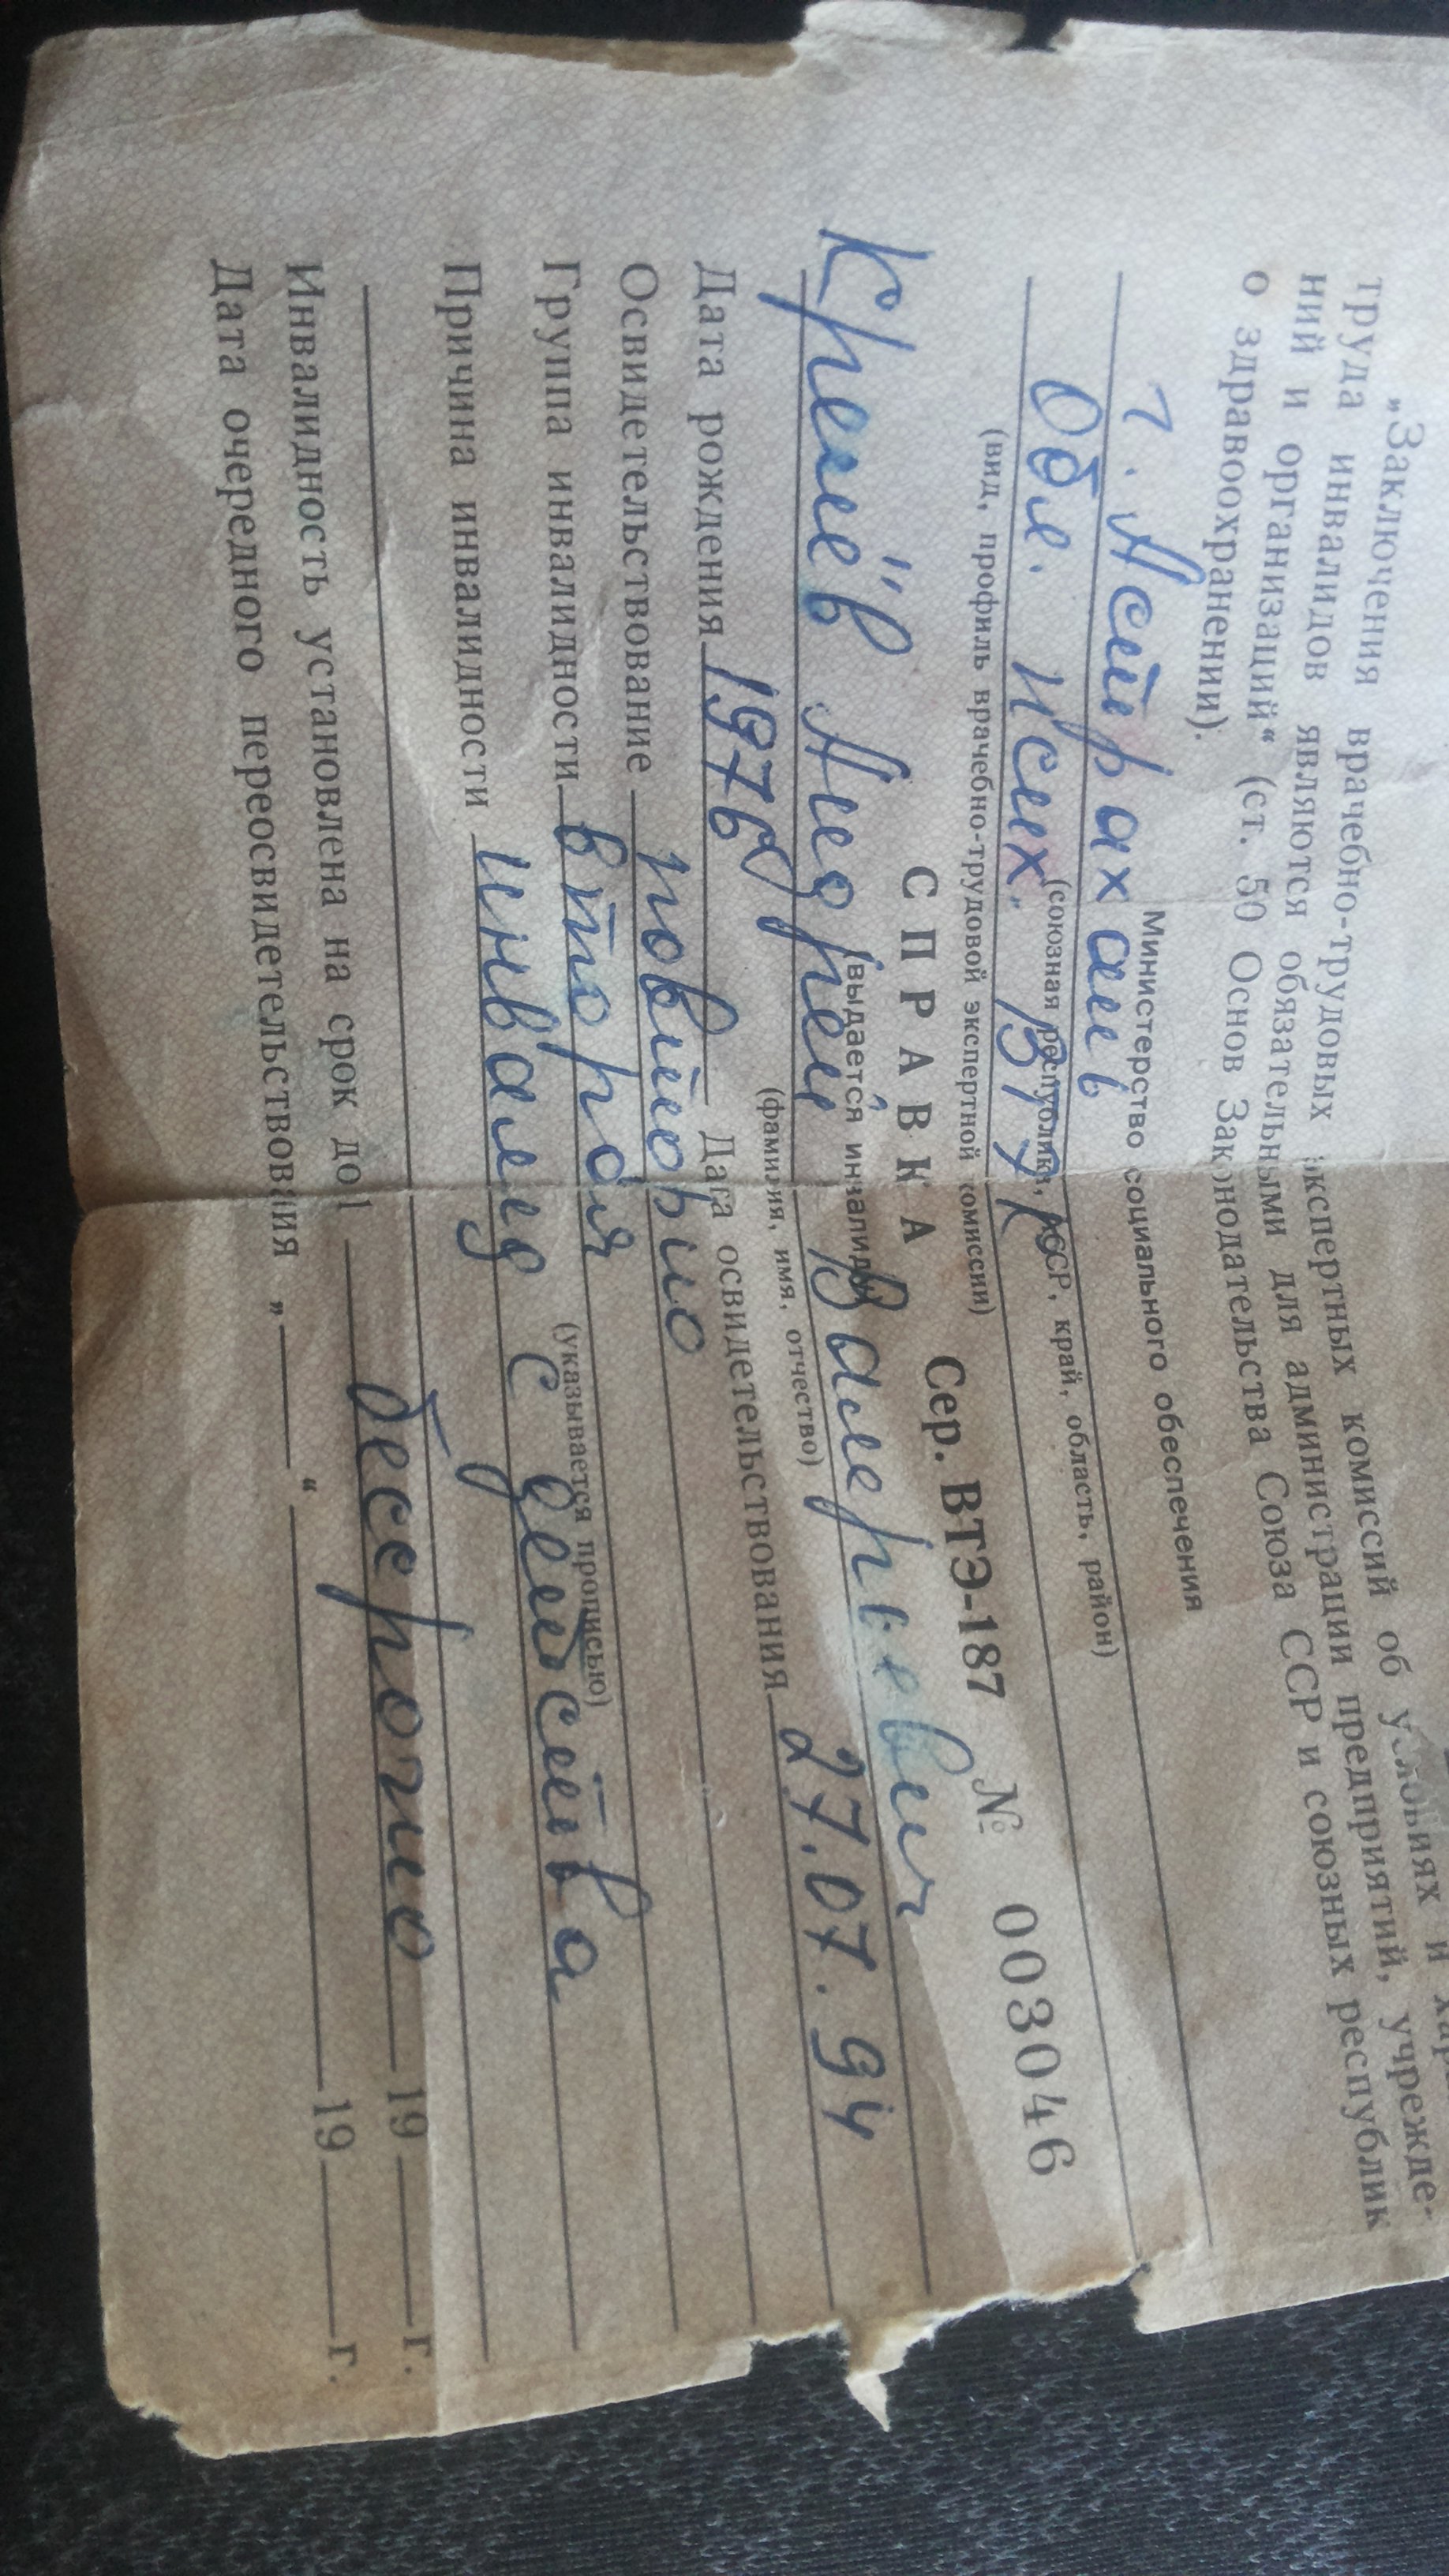 „Заключения врачебно-трудовых экспертных комиссий об условиях и
труда инвалидов являются обязательными для администрации предприятий, учрежде-
ний и организаций“ (ст. 50 Основ Законодательства Союза ССР и союзных республик
о здравоохранении).
Министерство социального обеспечения
г. Астрахань
(союзная республика, АССР, край, область, район)
Обл. псих. ВТЭК
(вид, профиль врачебно-трудовой экспертной комиссии)
СПРАВКА Сер. ВТЭ-187 № 003046
(выдается инвалиду)
Андрей Валерьевич
(фамилия, имя, отчество)
Дата рождения 1976 Дата освидетельствования 27.07.94
Освидетельствование повторно
Группа инвалидности вторая
(указывается прописью)
Причина инвалидности инвалид с детства
Инвалидность установлена на срок до бессрочно 19 г.
Дата очередного переосвидетельствования „ “ 19 г.